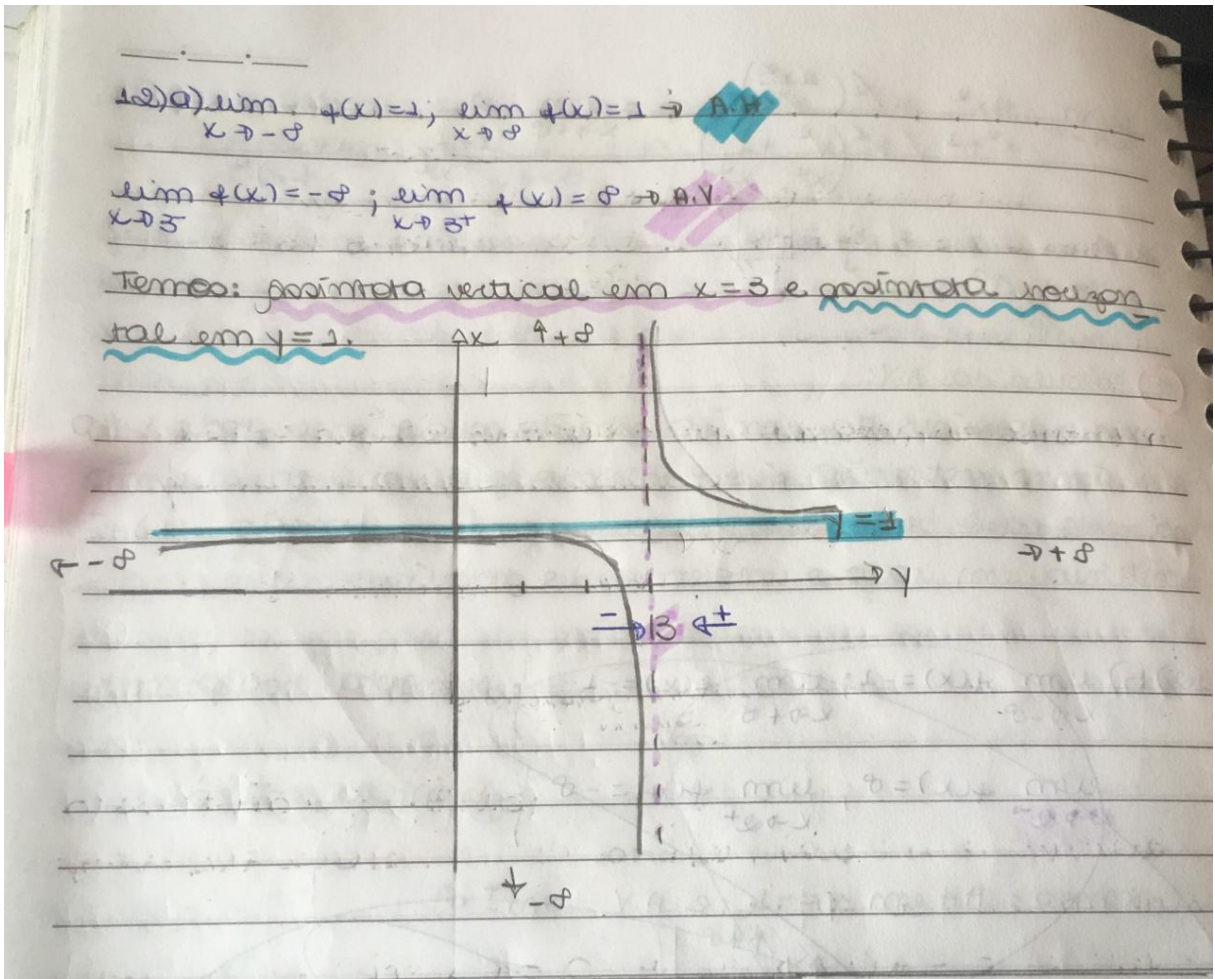 12)a) lim f(x)=1; lim f(x)=1 → A.H
x→-∞ x→∞
lim f(x)=-∞; lim f(x)=∞ → A.V
x→3⁻ x→3⁺
Temos: assíntota vertical em x=3 e assíntota horizon
tal em y=1.
x ↑+∞
y=1
←-∞ →+∞
y
- → 3 ← +
↓-∞